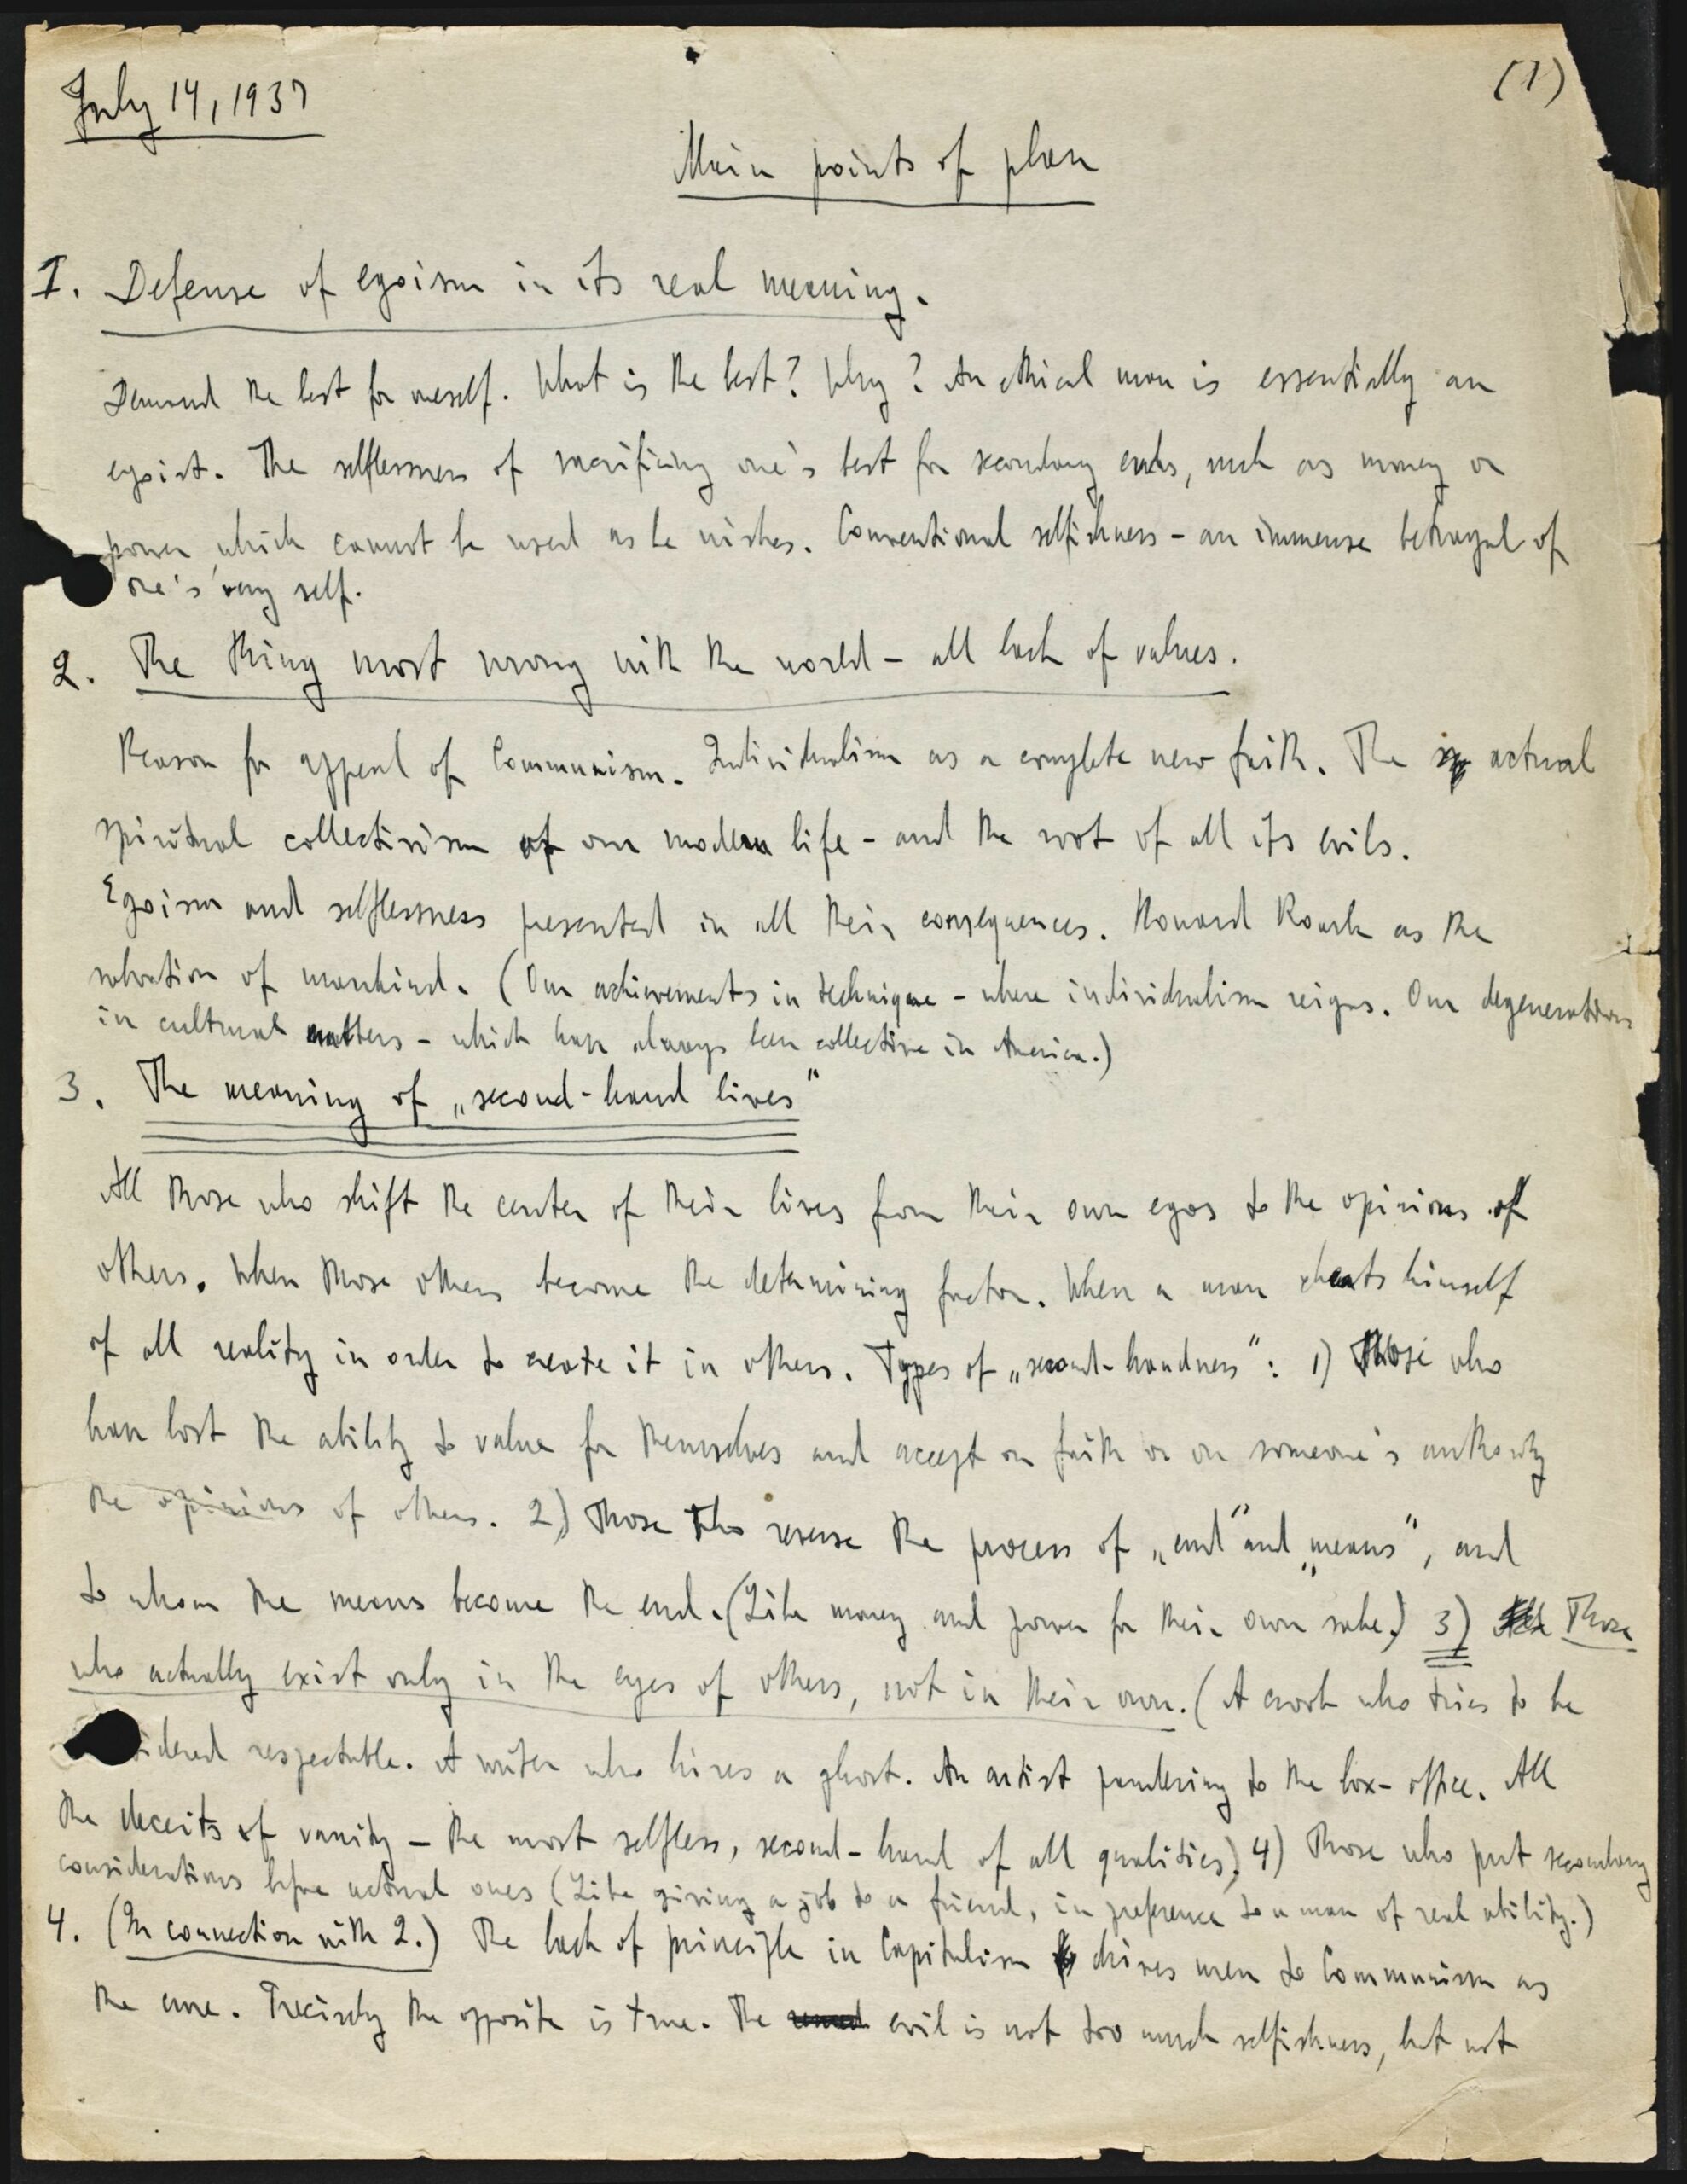 July 14, 1937
(1)
Main points of plan
I. Defense of egoism in its real meaning.
Demand the best for oneself. What is the best? Why? An ethical man is essentially an
egoist. The selflessness of sacrificing one's best for secondary ends, such as money or
power, which cannot be used as he wishes. Conventional selfishness – an immense betrayal of
one's very self.
2. The thing most wrong with the world – all lack of values.
Reason for appeal of Communism. Individualism as a complete new faith. The actual
spiritual collectivism of our modern life – and the root of all its evils.
Egoism and selflessness presented in all their consequences. Howard Roark as the
salvation of mankind. (Our achievements in technique – where individualism reigns. Our degeneration
in cultural matters – which have always been collective in America.)
3. The meaning of „second-hand lives“
All those who shift the center of their lives from their own egos to the opinions of
others. When those others become the determining factor. When a man cheats himself
of all reality in order to create it in others. Types of „second-handness“: 1) Those who
have lost the ability to value for themselves and accept on faith or on someone's authority
the opinions of others. 2) Those who reverse the process of „end“ and „means“, and
to whom the means become the end. (Like money and power for their own sake.) 3) Those
who actually exist only in the eyes of others, not in their own. (A crook who tries to be
sidered respectable. A writer who hires a ghost. An artist pandering to the box-office. All
the deceits of vanity – the most selfless, second-hand of all qualities.) 4) Those who put secondary
considerations before actual ones (Like giving a job to a friend, in preference to a man of real ability.)
4. (In connection with 2.) The lack of principle in Capitalism drives men to Communism as
the cure. Precisely the opposite is true. The evil is not too much selfishness, but not